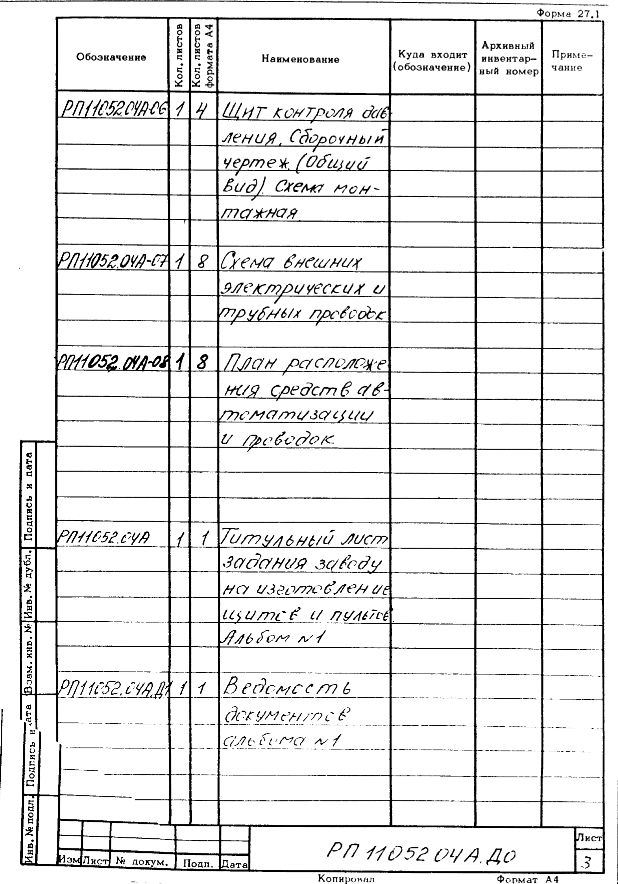 Форма 27.1
Обозначение Кол. листов Кол. листов формата А4 Наименование Куда входит (обозначение) Архивный инвентарный номер Приме-чание
РП11052.04А-06 1 4 Щит контроля дав-
ления, Сборочный
чертеж. (Общий
вид). Схема мон-
тажная
РП11052.04А-07 1 8 Схема внешних
электрических и
трубных проводок
РП11052.04А-08 1 8 План расположе
ния средств ав-
томатизации
и проводок.
РП11052.04А 1 1 Титульный лист
задания заводу
на изготовление
щитов и пультов.
Альбом №1
РП11052.04А.Д1 1 1 Ведомость
документов
альбома №1
Инв. № подл. Подпись и дата Взам. инв. № Инв. № дубл. Подпись и дата
Изм Лист № докум. Подп. Дата
РП 11052 04А.ДО
Лист
3
Копировал Формат А4